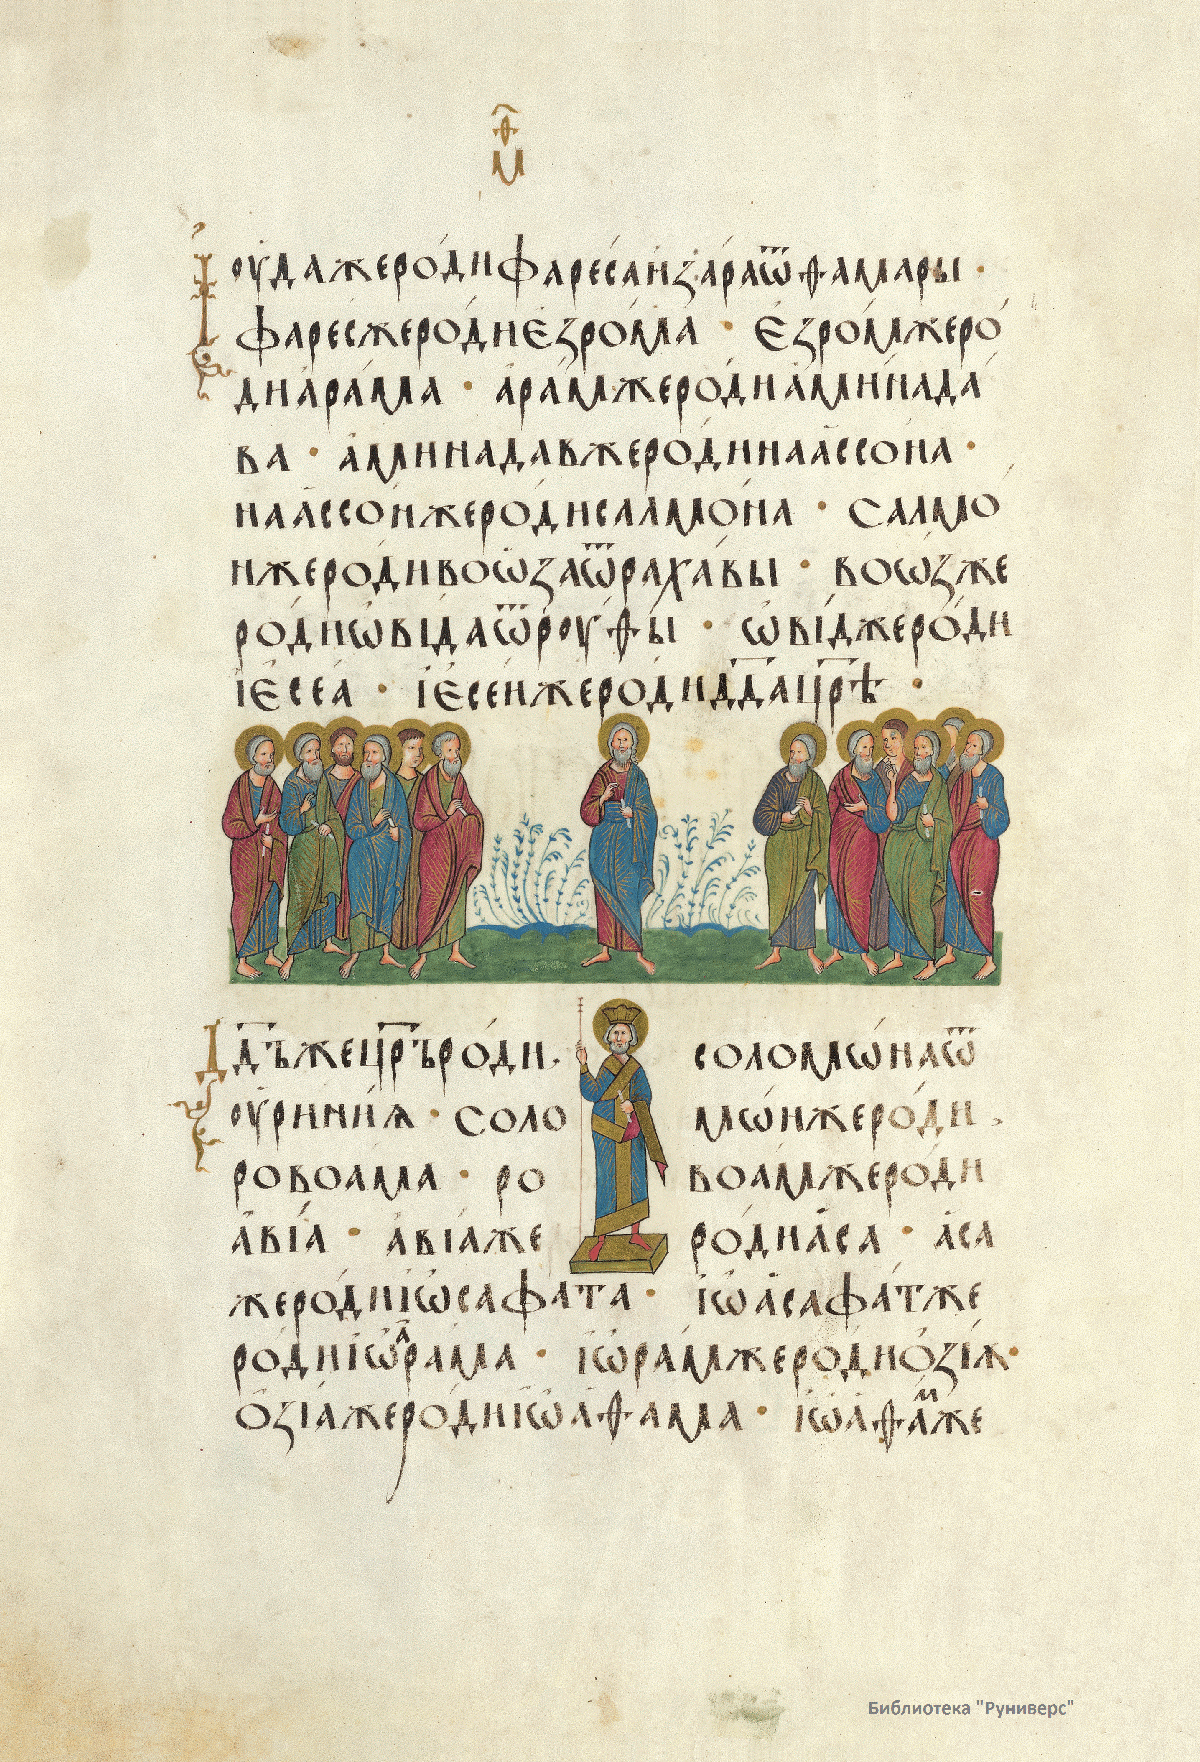 ѳ҃
м
І҆оу҆дажеро́дифаре́саи҆за́раѿѳама́ры ·
фаре́сжеро́диє҆зро́ма · є҆зро́мжеро́
диа҆ра́ма · а҆ра́мжеро́диа҆мїнада́
ва · а҆минада́вжеро́динаассо́на ·
наассо́нжеро́дисалмо́на · салмо́
нжеро́дивоѡ҆заѿраха́вы · воѡ́зже
ро́диѡ҆ви́даѿроу́ѳы · ѡ҆ви́джеро́ди
іє҆ссе́а · іє҆се́ижеро́дидв҃дацр҃ѣ ·
Дв҃дъжецр҃ьро́ди · соломѡ́наѿ
оу҆ри́инїѧ · соло мѡ́нжеро́ди ·
ровоа́ма · ро воа́мжеро́ди
а҆ві́а · а҆ві́аже ро́диа҆са · а҆са
жеро́диіѡ҆сафа́та · іѡ҆асафа́тже
ро́диіѡ҆ра́ма · іѡ҆ра́мжеро́диѻ҆зі́ѧ ·
ѻ҆зі́ажеро́диіѡ҆аѳа́ма · іѡ҆аѳа́мже
Библиотека "Руниверс"